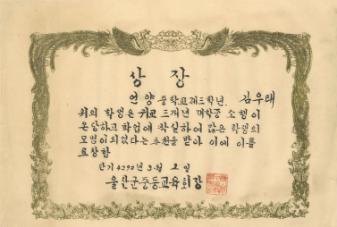 상장
언양중학교 제三학년. 김우래
위의 학생은 귀교 三개년 재학중 소행이
온당하고 학업에 착실하여 많은 학생의
모범이 되었다는 추천을 받아 이에 이를
표창함
단기 4290년 3월 2일
울산군중등교육회장